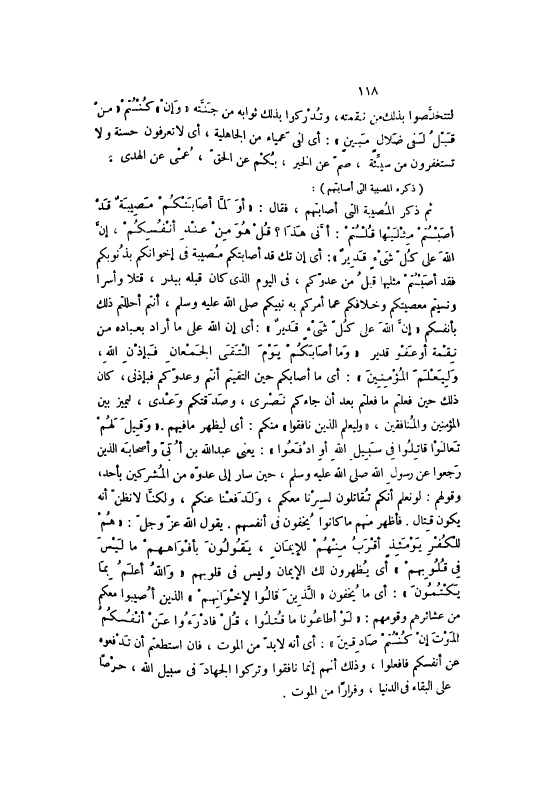 ١١٨
لتتخلَّصوا بذلك من نقمته، وتُدْركوا بذلك ثوابه من جنَّته « وَإنْ كُنْتُمْ مِنْ
قَبْلُ لَفى ضَلالٍ مبِينٍ » : أى لفى عَمياء من الجاهلية ، أى لاتعرفون حسنة ولا
تستغفرون من سيِّئة ، صمّ عن الخير ، بُكْم عن الحقّ ، عُمْى عن الهدى .
( ذكره المصيبة التى أصابتهم ) :
ثم ذكر المُصيبة التى أصابتهم ، فقال : « أوَ لَمَّا أصابَتْكُمْ مُصِيبَةٌ قَدْ
أصَبْتُمْ مِثْلَيْها قُلْتُمْ : أنَّى هَذَا ؟ قُلْ هُوَ مِنْ عِنْدِ أنْفُسِكُمْ ، إنَّ
اللهَ على كُلّ شَىْءٍ قَدِيرٌ » : أى إن تك قد أصابتكم مُصيبة فى إخوانكم بذُنوبكم
فقد أصَبْتُمْ مثليها قبلُ من عدوّكم ، فى اليوم الذى كان قبله ببدر ، قتلا وأسرا
ونسيتم معصيتكم وخلافكم عما أمركم به نبيكم صلى الله عليه وسلم ، أنتم أحللتم ذلك
بأنفسكم « إنَّ اللهَ على كُلّ شَىْءٍ قَدِيرٌ » : أى إن الله على ما أراد بعباده من
نِقْمة أوعَفْو قدير « وَما أصَابَكُمْ يَوْمَ الْتَقَى الجَمْعانِ فَبإذْنِ اللهِ،
وَلِيَعْلَمَ المُؤْمِنِينَ » : أى ما أصابكم حين التقيتم أنتم وعدوّكم فبإذنى، كان
ذلك حين فعلتم ما فعلتم بعد أن جاءكم نَصْرى ، وصَدَقتكم وَعْدى ، ليميز بين
المؤمنين والمُنافقين ، « وليعلم الذين نافقوا » منكم : أى ليظهر مافيهم .« وَقِيلَ لَهُمْ
تَعالَوْا قاتِلُوا فِى سَبِيلِ اللهِ أوِ ادْفَعُوا » : يعنى عبدالله بن أُبىّ وأصحابَه الذين
رَجعوا عن رسول الله صلى الله عليه وسلم ، حين سار إلى عدوّه من المُشركين بأحد،
وقولهم : لونعلم أنكم تُقاتلون لسِرْنا معكم ، ولَدَفعْنا عنكم ، ولكنَّا لانظنّ أنه
يكون قتِال . فأظهر منهم ماكانوا يُخفون فى أنفسهم . يقول الله عزّ وجلّ : « هُمْ
للْكُفْرِ يَوْمَئِذٍ أقْرَبُ مِنْهُمْ للإيمَانِ ، يَقُولُونَ بأفْوَاهِهِمْ ما لَيْسَ
فِى قُلُوبِهِمْ » أى يُظهرون لك الإيمان وليس فى قلوبهم « وَاللهُ أعْلَمُ بِمَا
يَكْتُمُونَ » : أى ما يُخفون « الَّذِينَ قالُوا لإخْوَانِهِمْ » الذين أُصيبوا معكم
من عشائرهم وقومهم : « لَوْ أطاعُونا ما قُتِلُوا ، قُلْ فادْرَءُوا عَنْ أنْفُسِكُمُ
المَوْتَ إنْ كُنْتُمْ صَادِقينَ » : أى أنه لابدّ من الموت ، فان استطعتم أن تَدْفعوه
عن أنفسكم فافعلوا ، وذلك أنهم إنما نافقوا وتركوا الجهادَ فى سبيل الله ، حِرْصًا
على البقاء فى الدنيا ، وفرارًا من الموت .